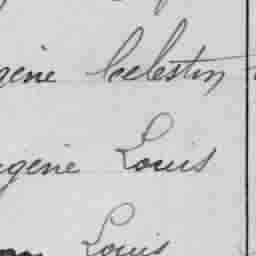 gène Celestin
ugène Louis
Louis